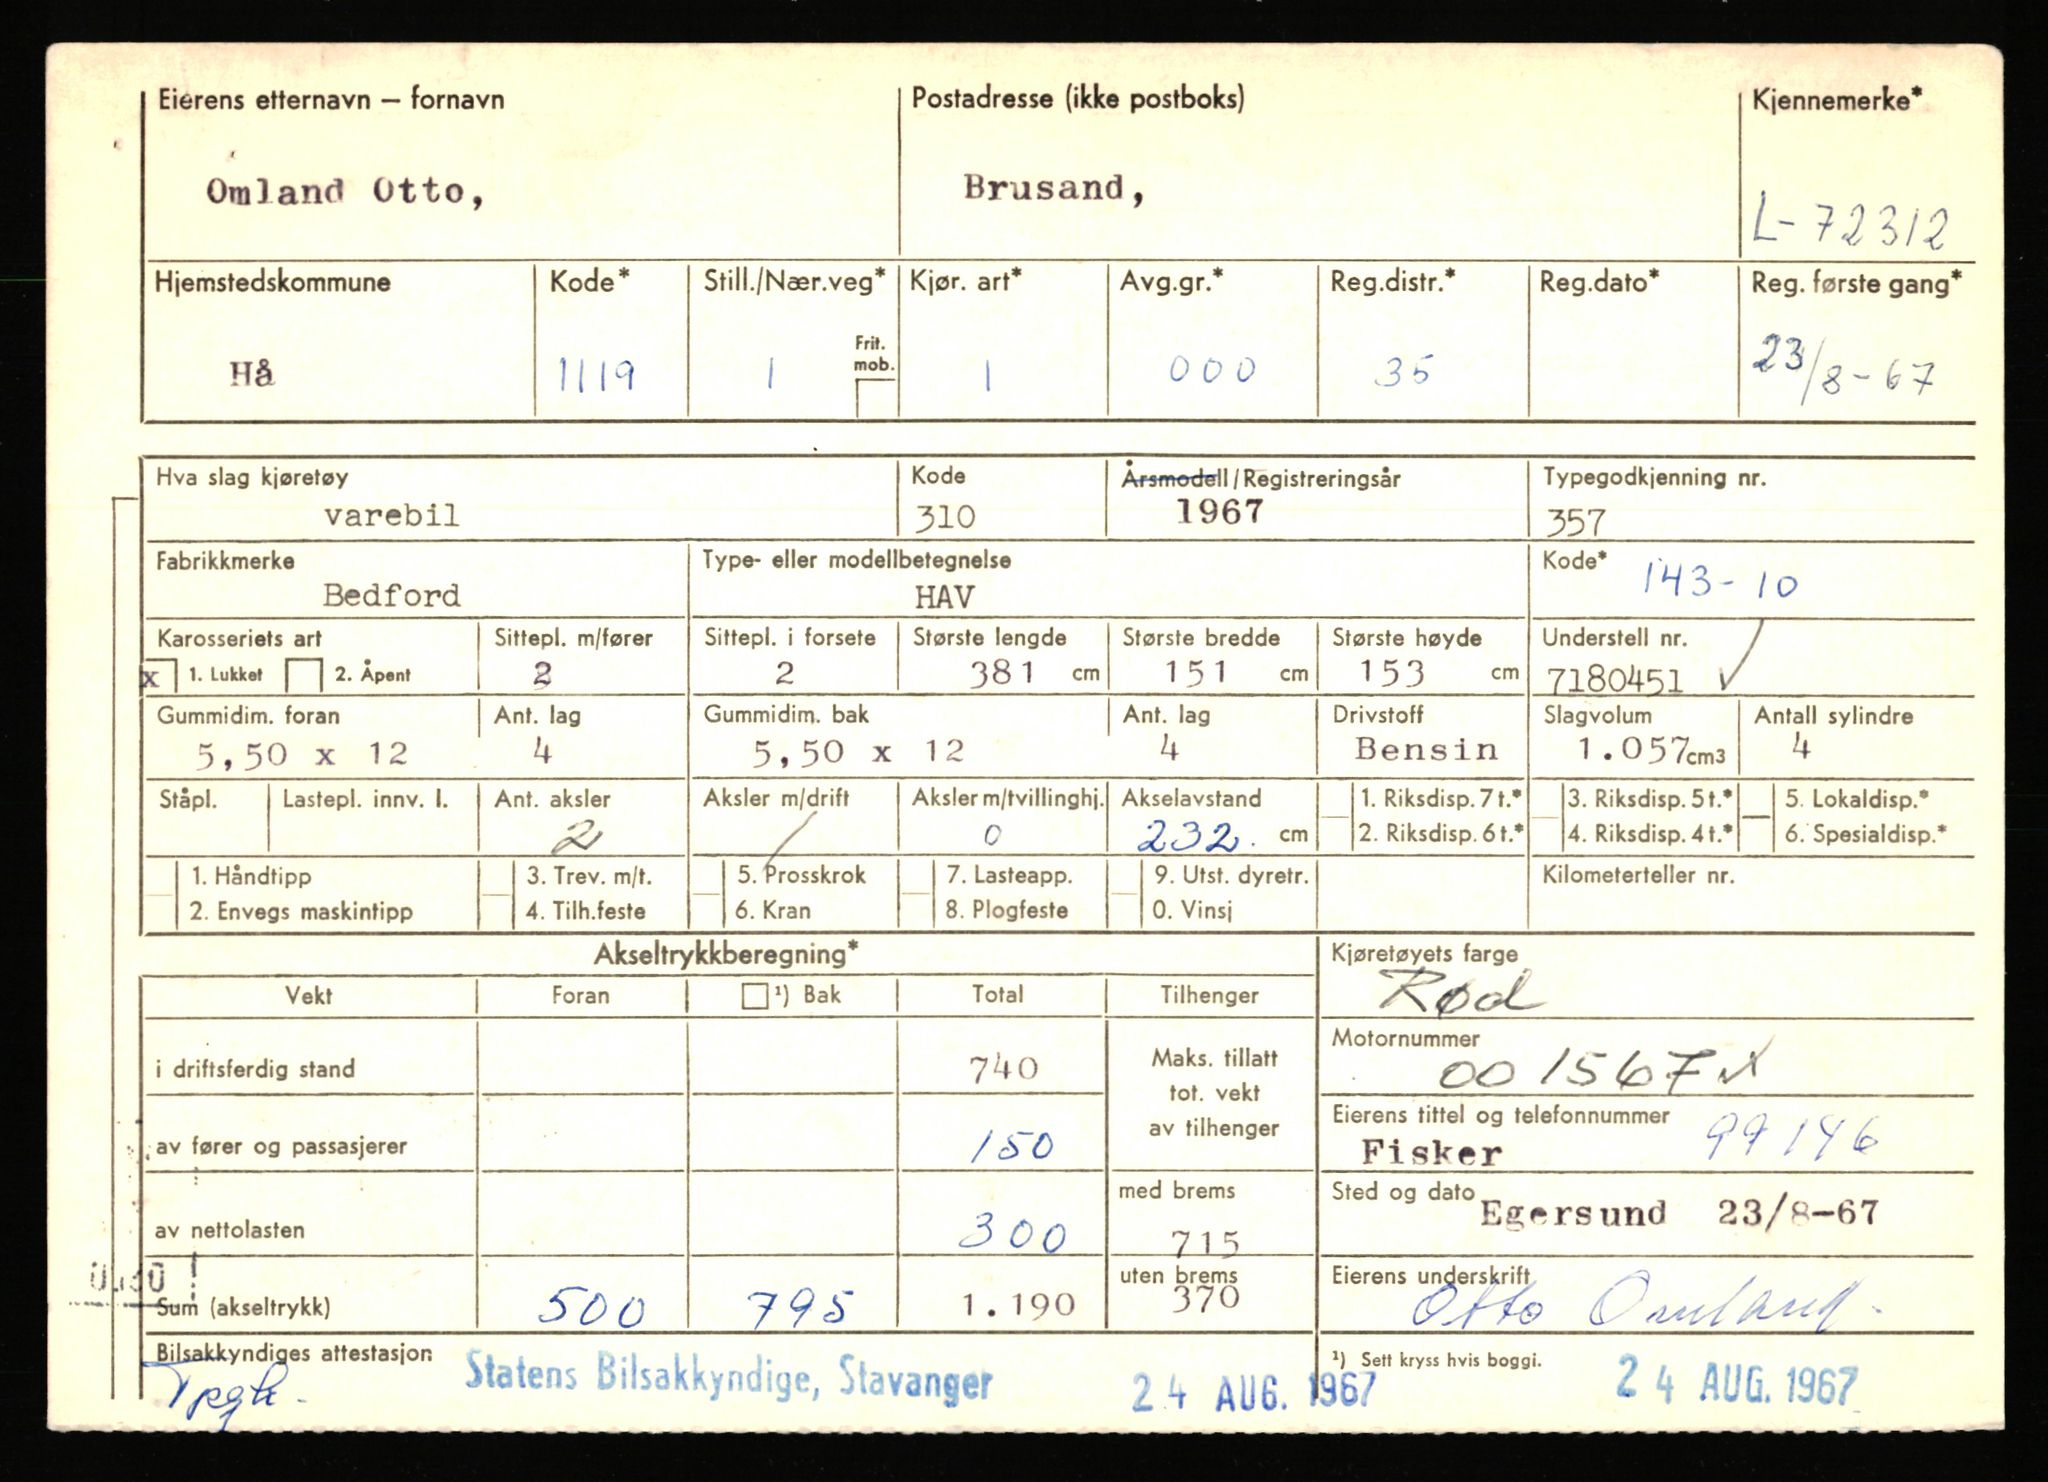 Eierens etternavn – fornavn Postadresse (ikke postboks) Kjennemerke*
Omland Otto, Brusand, L-72312
Hjemstedskommune Kode* Still./Nær.veg* Kjør. art* Avg.gr.* Reg.distr.* Reg.dato* Reg. første gang*
Frit. mob.
Hå 1119 1 1 000 35 23/8-67
Hva slag kjøretøy Kode Årsmodell/Registreringsår Typegodkjenning nr.
varebil 310 1967 357
Fabrikkmerke Type- eller modellbetegnelse Kode*
Bedford HAV 143-10
Karosseriets art Sittepl. m/fører Sittepl. i forsete Største lengde Største bredde Største høyde Understell nr.
x 1. Lukket 2. Åpent 2 2 381 cm 151 cm 153 cm 7180451
Gummidim. foran Ant. lag Gummidim. bak Ant. lag Drivstoff Slagvolum Antall sylindre
5,50 x 12 4 5,50 x 12 4 Bensin 1.057 cm3 4
Ståpl. Lastepl. innv. l. Ant. aksler Aksler m/drift Aksler m/tvillinghj. Akselavstand 1. Riksdisp. 7 t.* 3. Riksdisp. 5 t.* 5. Lokaldisp.*
2 / 0 232. cm 2. Riksdisp. 6 t.* 4. Riksdisp. 4 t.* 6. Spesialdisp.*
1. Håndtipp 3. Trev. m/t. 5. Prosskrok 7. Lasteapp. 9. Utst. dyretr. Kilometerteller nr.
2. Envegs maskintipp 4. Tilh.feste 6. Kran 8. Plogfeste 0. Vinsj
Akseltrykkberegning* Kjøretøyets farge
Vekt Foran ¹) Bak Total Tilhenger Rød
i driftsferdig stand 740 Maks. tillatt tot. vekt av tilhenger Motornummer
001567
av fører og passasjerer 150 Eierens tittel og telefonnummer
Fisker 99146
av nettolasten 300 med brems 715 Sted og dato Egersund 23/8-67
Sum (akseltrykk) 500 795 1.190 uten brems 370 Eierens underskrift
Otto Omland
Bilsakkyndiges attestasjon Statens Bilsakkyndige, Stavanger 24 AUG. 1967 ¹) Sett kryss hvis boggi. 24 AUG. 1967